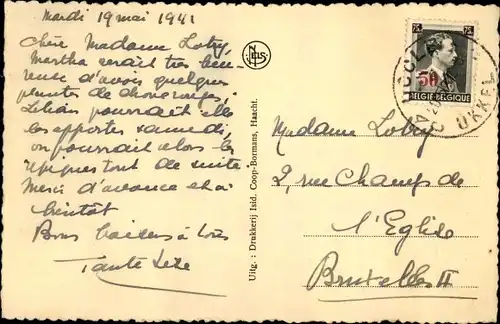 Mardi 19 mai 1941
Chère Madame Lobry,
Martha serait très heu-
reuse d'avoir quelques
plants de choux rouges.
Lilian pourrait elle
les apporter samedi,
on pourrait alors les
repiquer tout de suite.
Merci d'avance et à
bientôt
Bons baisers à tous
Tante Lize
Nels
Uitg. : Drukkerij Isid. Coop-Bormans, Haacht.
75c 75c
50
BELGIE-BELGIQUE
UCCLE
UKKEL
Madame Lobry
2, rue Champs de
l'Eglise
Bruxelles II